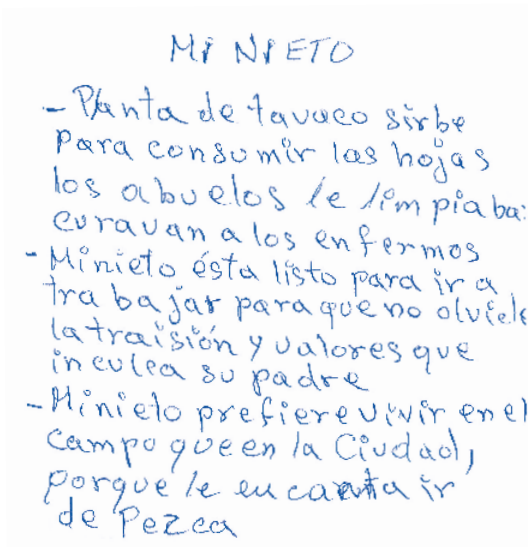 MI NIETO
- Planta de tavaco sirbe
para consumir las hojas
los abuelos le limpiaba:
curavan a los enfermos
- Mi nieto ésta listo para ir a
trabajar para que no olviele
la traisión y valores que
inculca su padre
- Mi nieto prefiere vivir en el
campo que en la Ciudad,
porque le encanta ir
de Pezca